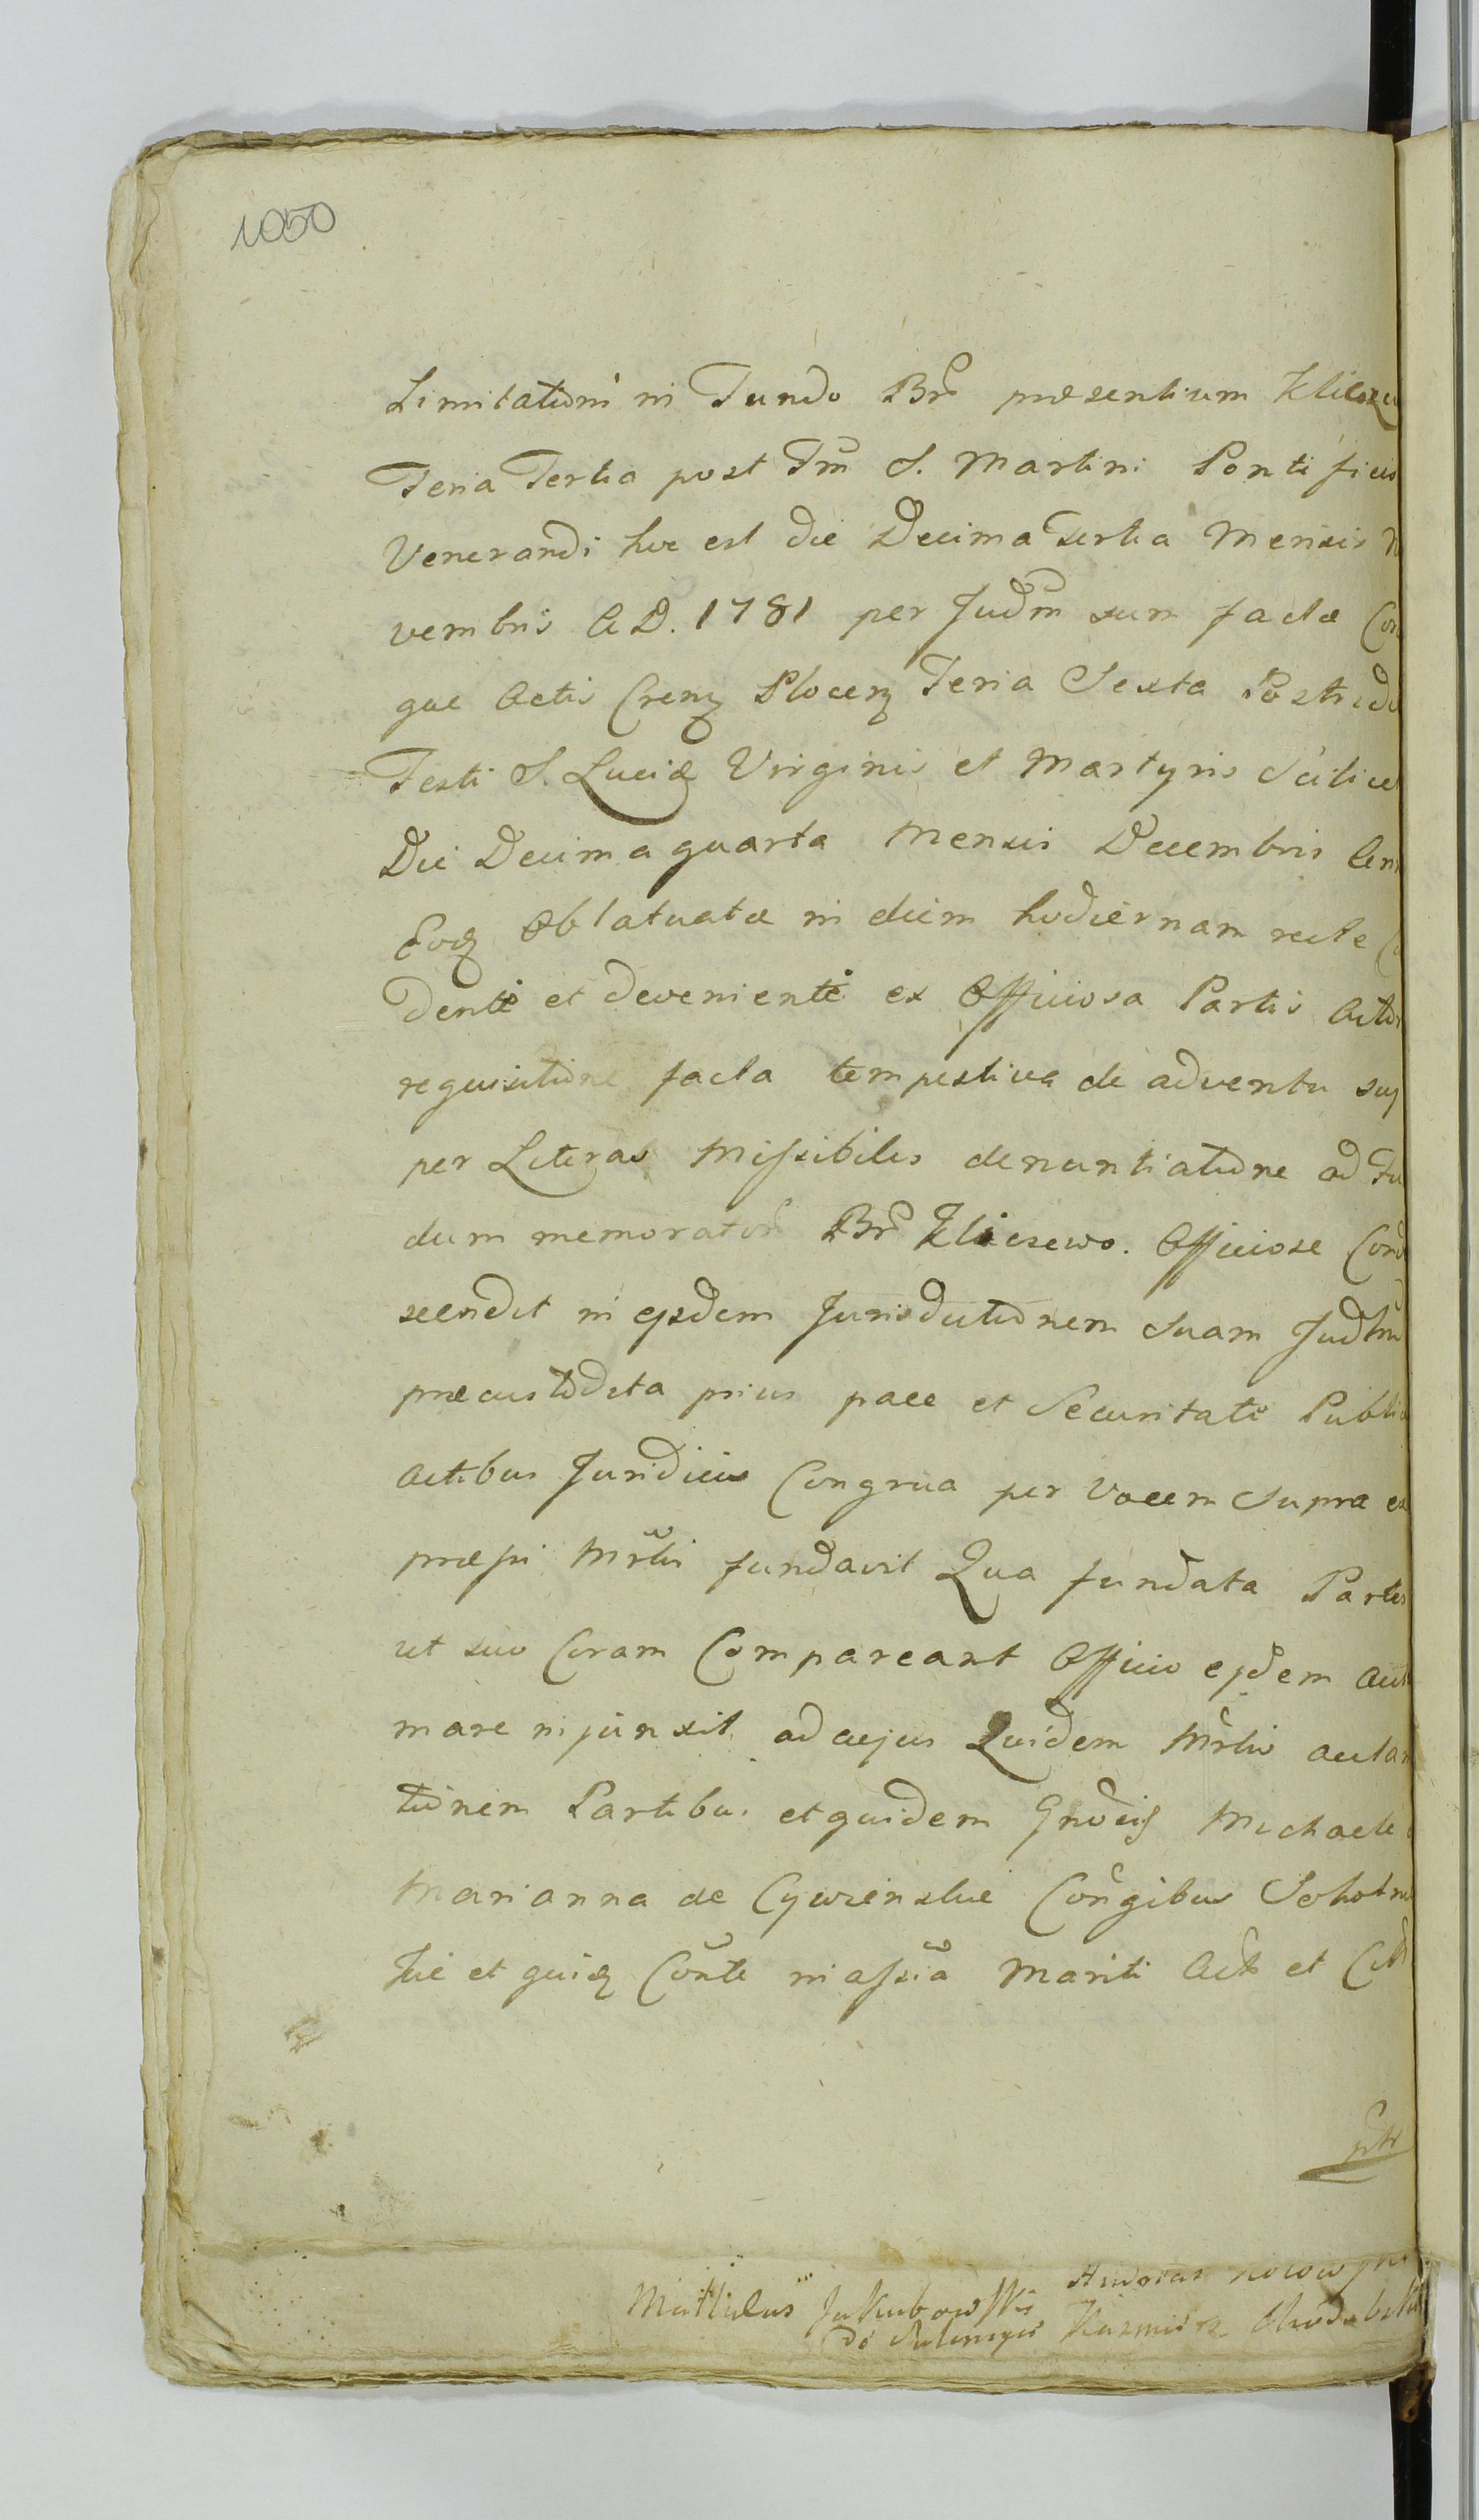 1050
Limitationi in Fundo Br̃ præsentium Kliczew
Feria Tertia post Fm̃ S. Martini Pontificis
Venerandi hoc est die Decima tertia Mensis N
vembris A D. 1781 per Judm̃ sum factæ Con
que Actis Crenz Plocenz Feria Sexta Postridi
Festi S. Luciæ Virginis et Martyris Scilicet
Die Decima quarta Mensis Decembris Ann
Eoq Oblatuatæ in diem hodiernam recte C
denti et devenienti ex Officiosa Partis Actor
requisitione facta tempestiva de adventu suo
per Literas Missibiles denuntiatione ad Fu
dum memorator̃ Br̃ Kliczewo. Officiose Cond
scendit in ejsdem Jurisdictionem suam Judtm̃
præcustodita prius pace et Securitate Public
actibus Juridicis Congrua per Vocem supra ex
præssi Mr̃lis fundavit Qua fundata Partes
ut suo Coram Compareant Officio ejdem acti
mare injunxit ad cujus Quidem Mr̃lis aclam
tionem Partibus et quidem Gnõeis Michaele
Marianna de Cywienskie Cõngibus Sokolni
kie et quiq Cõnte in assia Mariti Act et Citt
ptt
Mattheus Jakubowski Andreas
Kazmierz